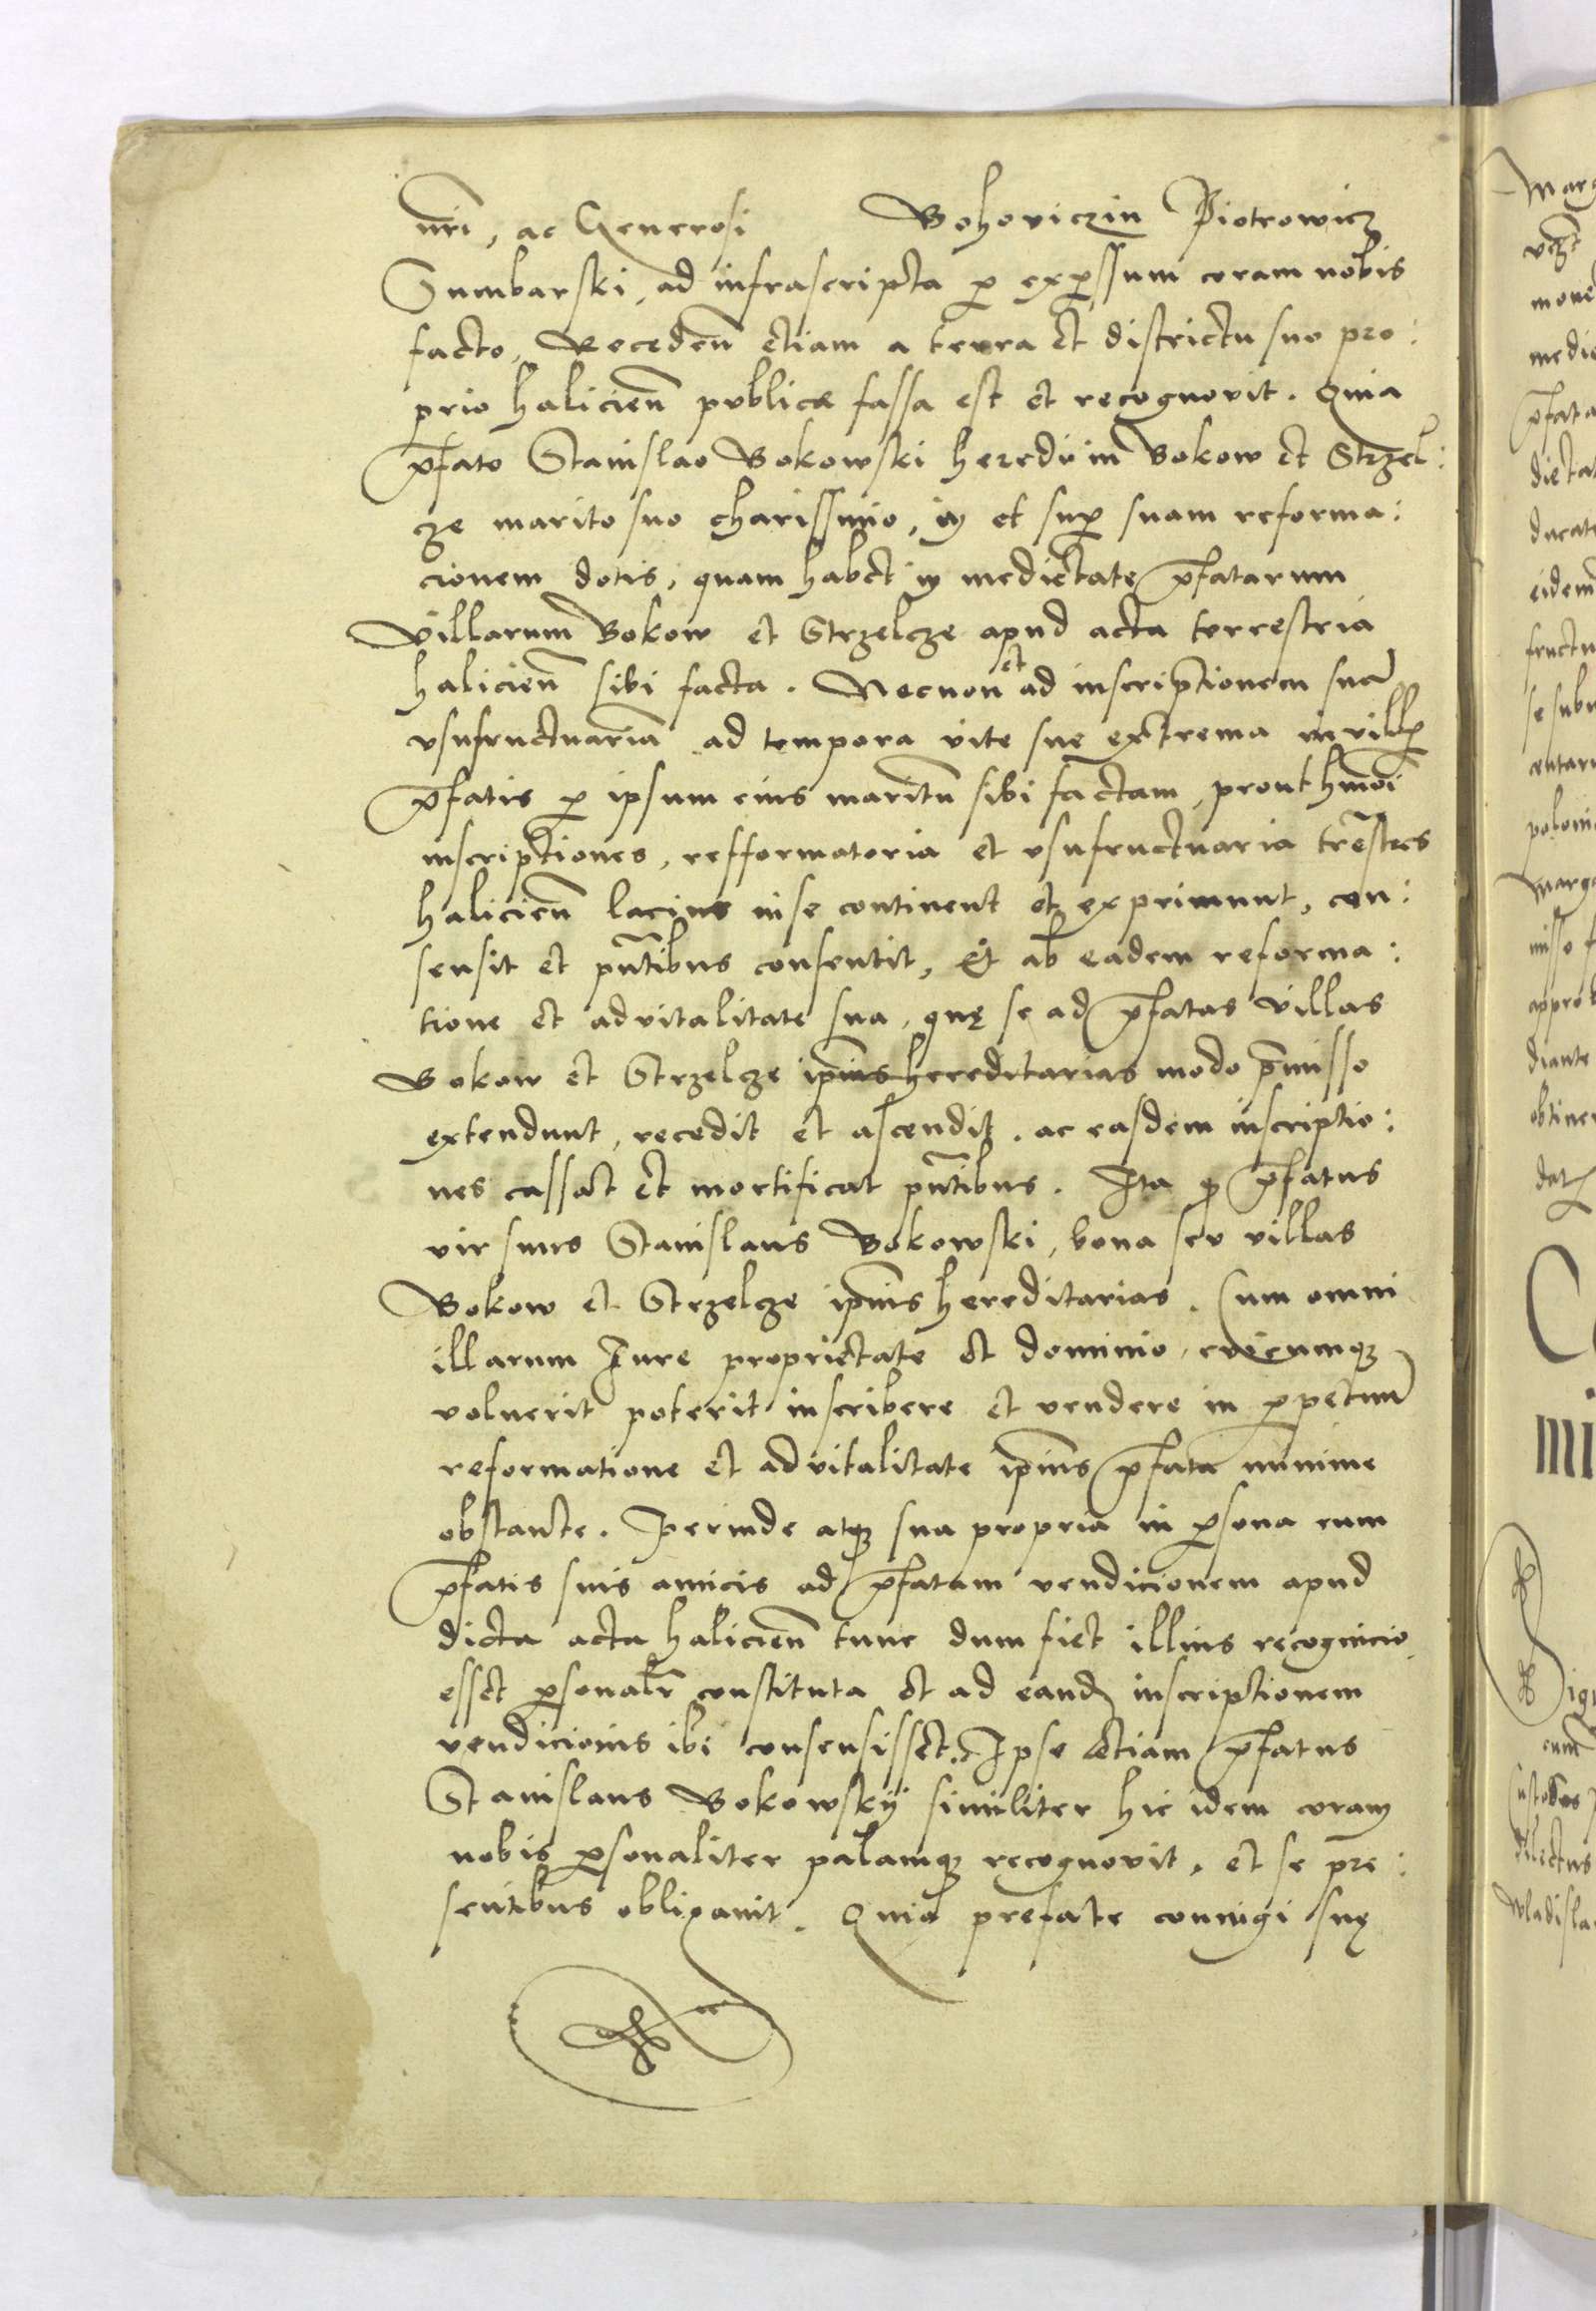 nri, ac Generosi Bohoviczin Piotrowicz
Sumbarski, ad infrascripta p expssum coram nobis
facto, Recedeñ etiam a terra et districtu suo pro:
prio halicieñ publice fassa est et recognovit. Quia
pfato Stanislao Bokowski heredi in Bokow et Strzel:
cze marito suo charissimo, in et sup suam reforma:
cionem dotis, quam habet in medietate pfatarum
villarum Bokow et Strzelcze apud acta terrestria
halicieñ sibi facta. Necnon et ad inscriptionem suã
usufructuariã ad tempora vite sue extrema in villis
pfatis p ipsum eius maritũ sibi factam, prout hmoi
inscriptiones, refformatoria et usufructuaria trestres
halicieñ lacius in se continent et exprimunt, con:
sensit et pntibus consentit, Et ab eadem reforma:
tione et advitalitate sua, que se ad pfatas villas
Bokow et Strzelcze ipius hereditarias modo pmisso
extendunt, recedit et ascendit, ac easdem inscriptio:
nes cassat et mortificat pntibus. Ita q pfatus
vir suus Stanislaus Bokowski, bona seu villas
Bokow et Strzelcze ipius hereditarias. Cum omni
illarum Iure proprietate et dominio, cuicumq
voluerit poterit inscribere et vendere in ppetuũ
reformatione et advitalitate ipius pfata minime
obstante. Perinde atq sua propria in psona cum
pfatis suis amicis ad pfatam vendicionem apud
dicta acta halicieñ tunc dum fiet illius recognicio
esset psonalr constituta et ad eand inscriptionem
vendicionis ibi consensisset. Ipse etiam pfatus
Stanislaus Bokowskÿ similiter hic idem coram
nobis psonaliter palamq recognovit, et se pre:
sentibus obligavit. Quia prefate coniugi sue